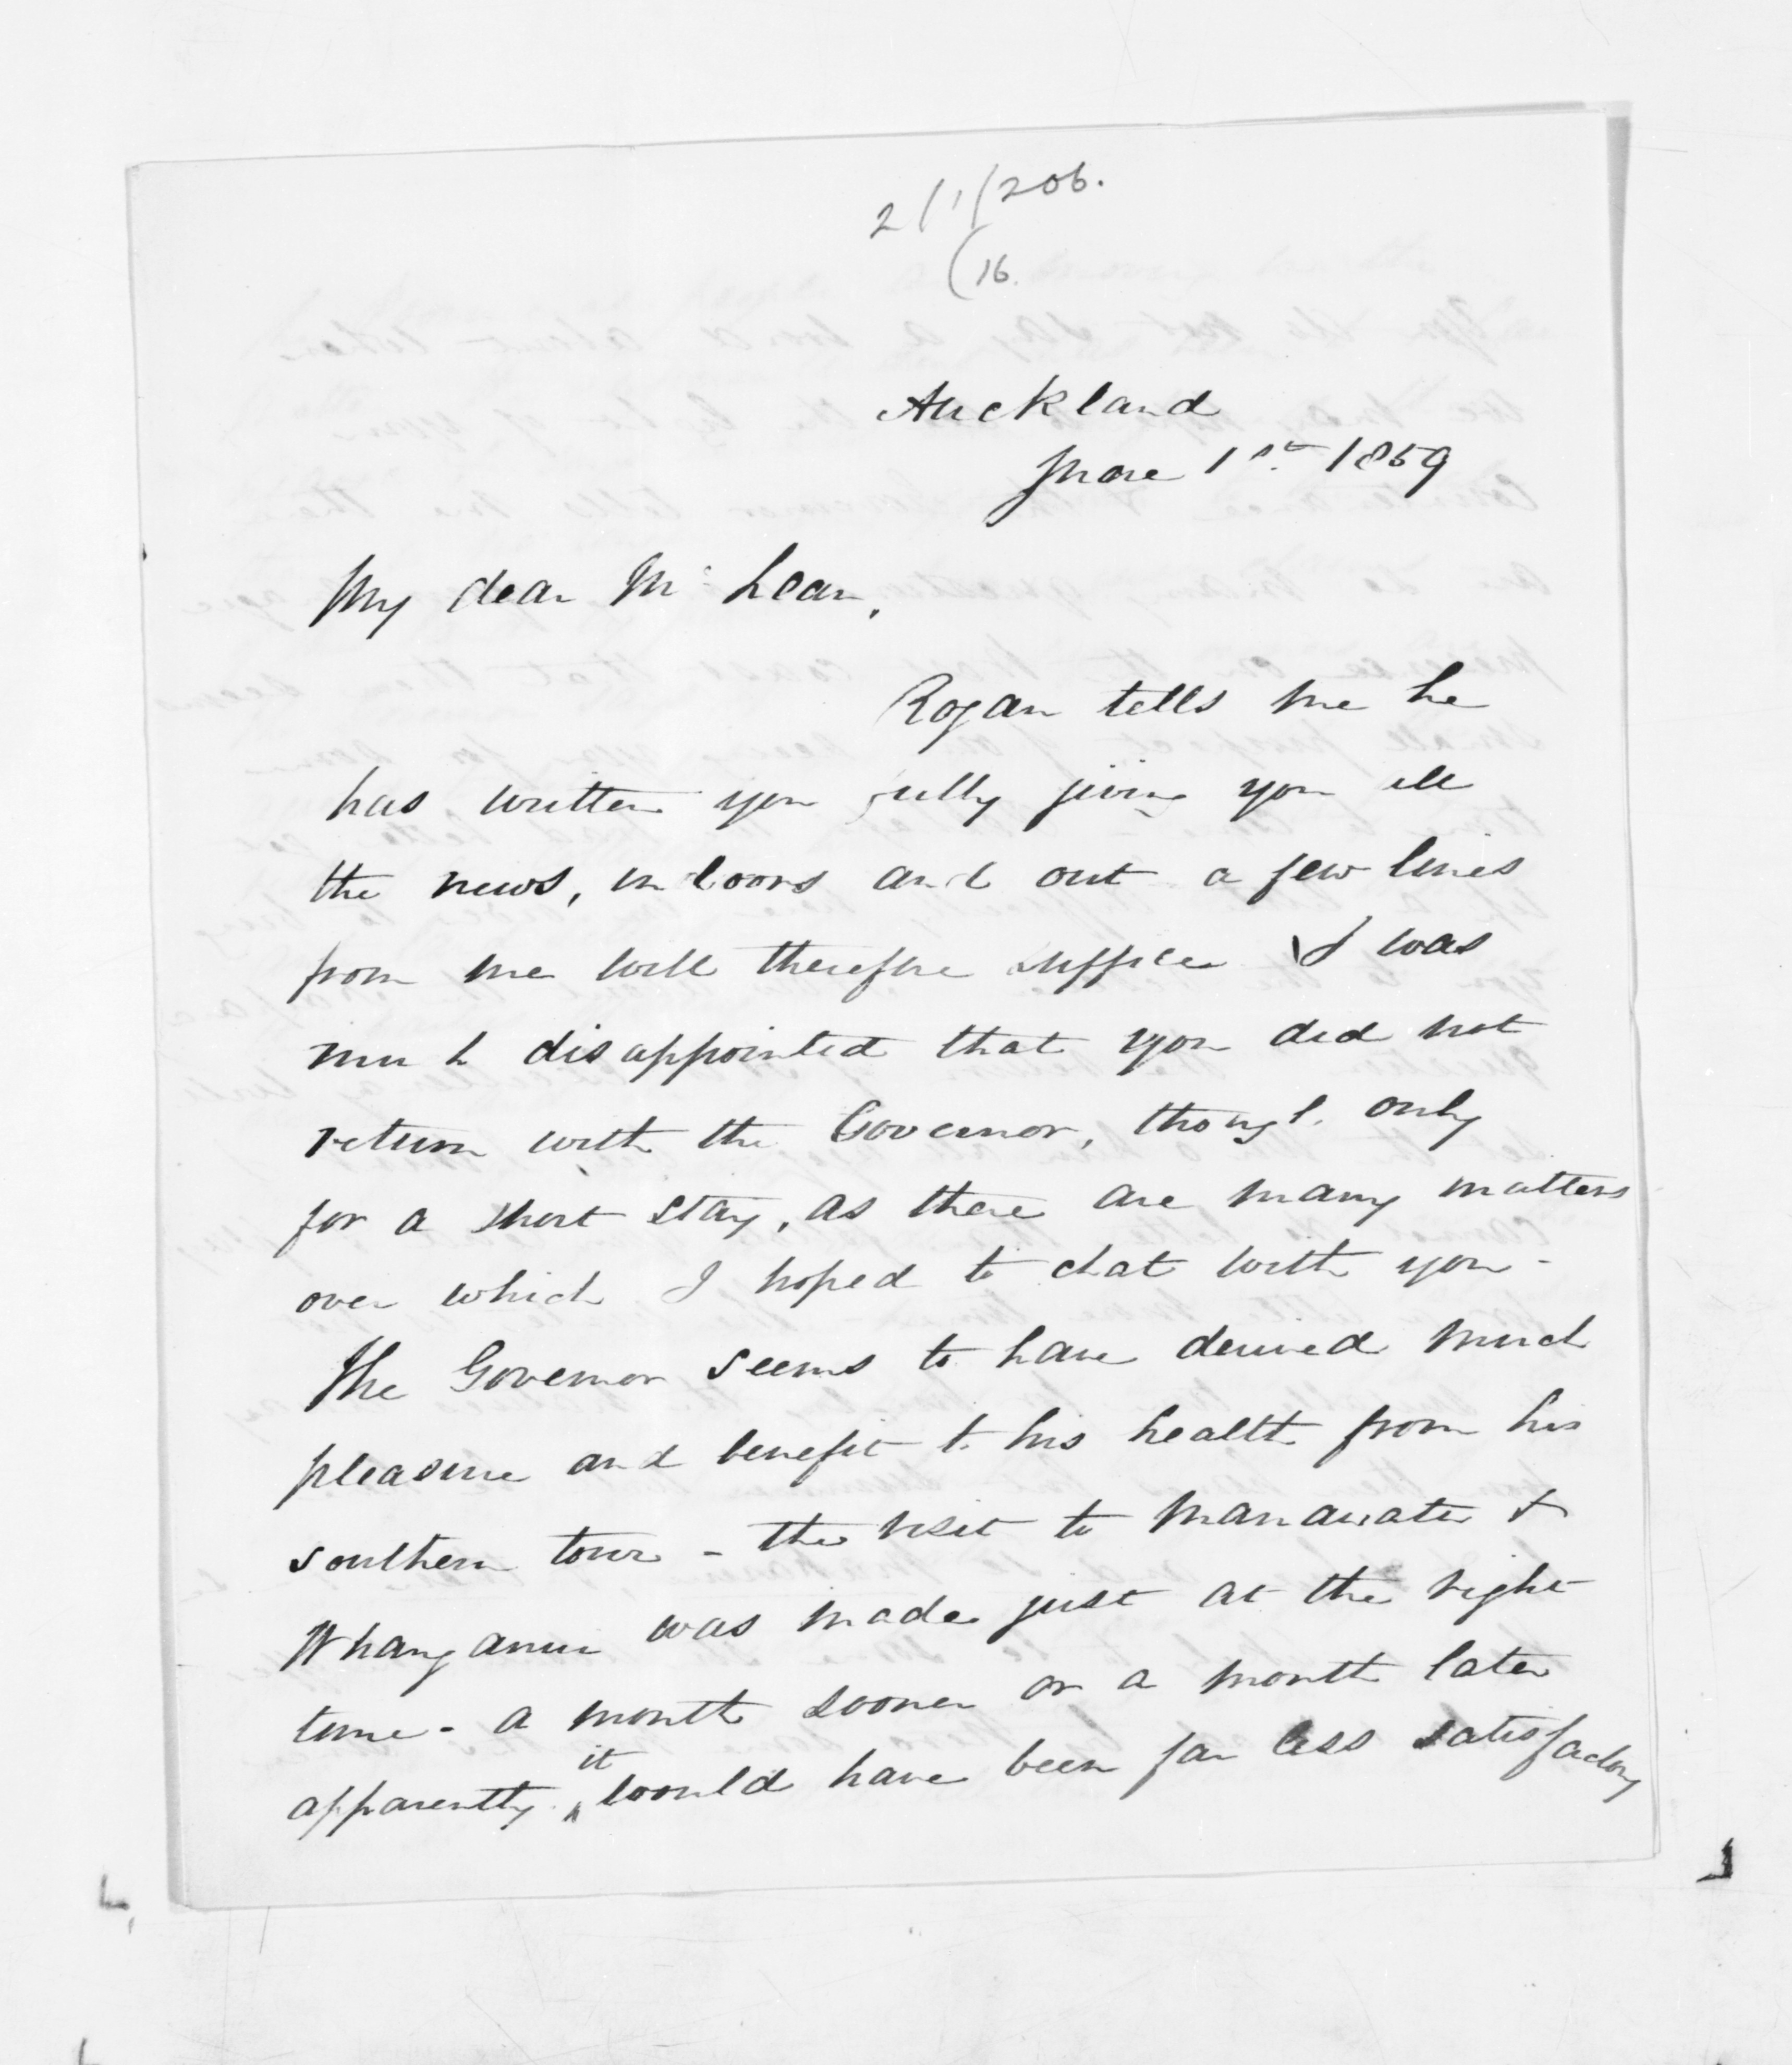 2/1/206.
(16.
Auckland
June 1st 1859
My dear Mc Lean,
Rogan tells me he
has written you fully giving you all
the news, in doors and out a few lines
from me will therefore suffice I was
much disappointed that you did not
return with the Governor, though only
for a short stay, as there are many matters
over which I hoped to chat with you -
The Governor seems to have derived much
pleasure and benefit to his health from his
southern tour - the visit to Manawatu &
Whanganui was made just at the right
time - a month sooner or a month later
apparently it would have been far less satisfactory